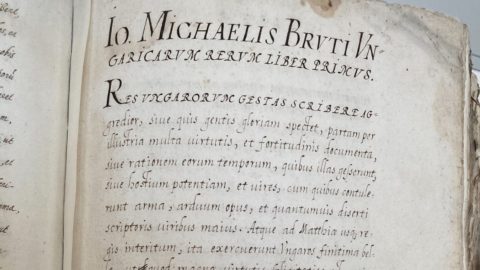 Io. MICHAELIS BRUTI UN-
GARICARUM RERUM LIBER PRIMUS.
RES UNGARORUM GESTAS SCRIBERE AG-
gredior, sive quis gentis gloriam spectet, partam per
illustria multa virtutis, et fortitudinis documenta,
sive rationem eorum temporum, quibus illas gesserunt,
sive hostium potentiam, et vires, cum quibus contule-
runt arma, arduum opus, et quantumuis diserti
scriptoris viribus maius. Atque ad Matthiæ usq; re-
gis interitum, ita exercuerunt Ungaros finitima bel-
la, ut quod magna virtutis